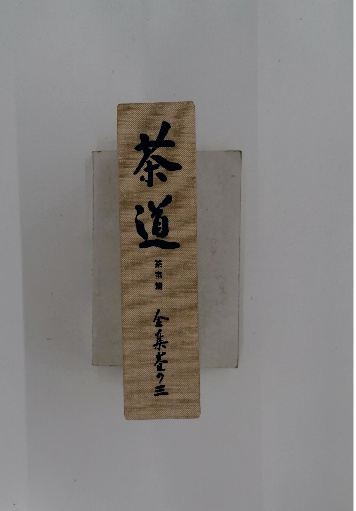 茶道
茶事篇
全集巻の三